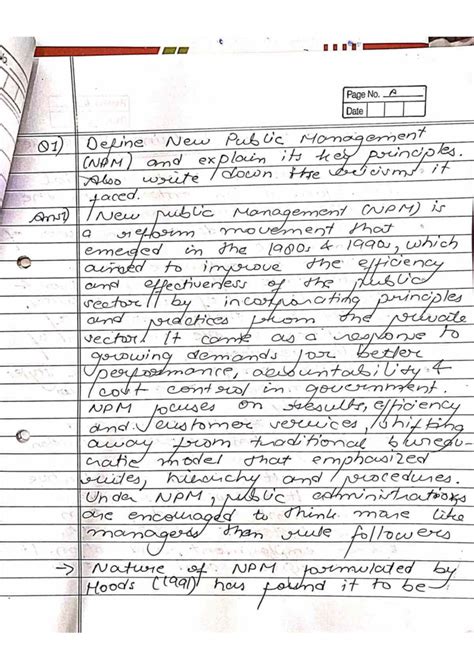 Page No. A
Date
Q1) Define New Public Management
(NPM) and explain its key principles.
Also write down the criticisms it
faced.
Ans1) New public Management (NPM) is
a reform movement that
emerged in the 1980s & 1990s, which
aimed to improve the efficiency
and effectiveness of the public
sector by incorporating principles
and practices from the private
sector. It came as a response to
growing demands for better
performance, accountability &
cost control in government.
NPM focuses on results, efficiency
and customer services, shifting
away from traditional bureau-
cratic model that emphasized
rules, hierarchy and procedures.
Under NPM, public administrations
are encouraged to think more like
managers than rule followers
→ Nature of NPM formulated by
Hoods (1991) has found it to be